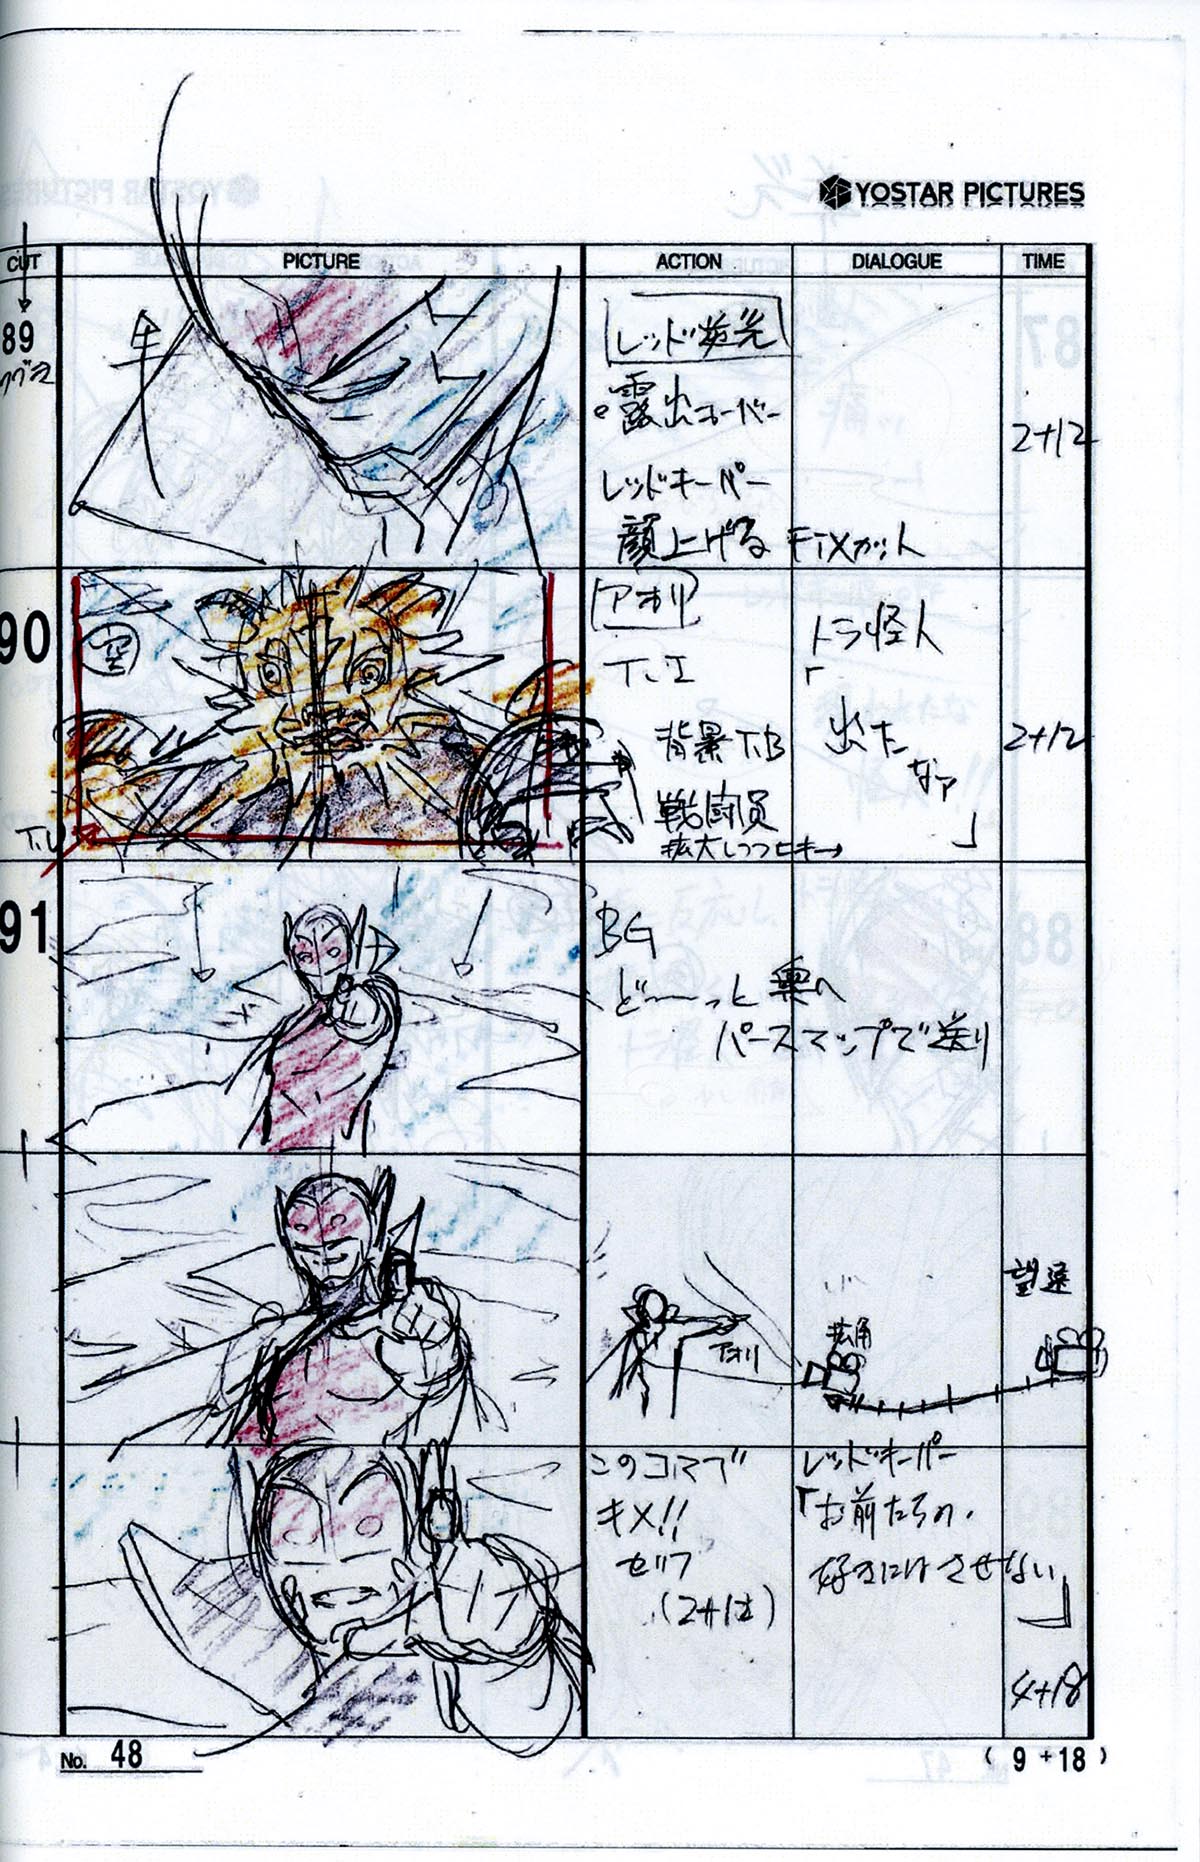 YOSTAR PICTURES
CUT
PICTURE
ACTION
DIALOGUE
TIME
89
レッド逆光
露出オーバー
レッドキーパー
顔上げる FIXカット
2+12
90
空
T.U
アオリ
T.U
背景T.B
戦闘員
拡大しつつヒキ→
トラ怪人
「
出た
なァ
」
2+12
91
BG
ど〜〜っと 奥へ
パースマップで送り
アオリ
広角
望遠
このコマで
キメ!!
セリフ
レッドキーパー
「お前たちの
好きにはさせない」
4+18
No. 48
( 9 +18 )